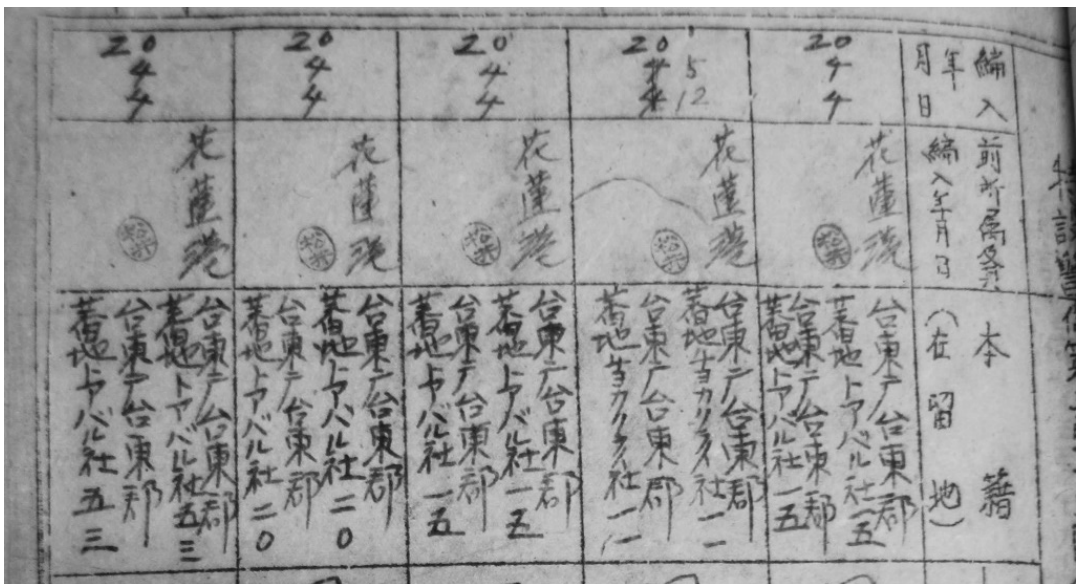 編入
年月日
前所属及其
編入年月日
本籍
(在留地)
20
4
4
花蓮港
松平
台東庁台東郡
蕃地トアバル社一五
台東庁台東郡
蕃地トアバル社一五
20
4 5
4 12
花蓮港
台東庁台東郡
台東庁台東郡
20
4
4
花蓮港
台東庁台東郡
蕃地トアバル社一五
台東庁台東郡
蕃地トアバル社一五
20
4
4
花蓮港
台東庁台東郡
蕃地トアバル社二〇
台東庁台東郡
蕃地トアバル社二〇
20
4
4
花蓮港
台東庁台東郡
蕃地トアバル社五三
台東庁台東郡
蕃地トアバル社五三